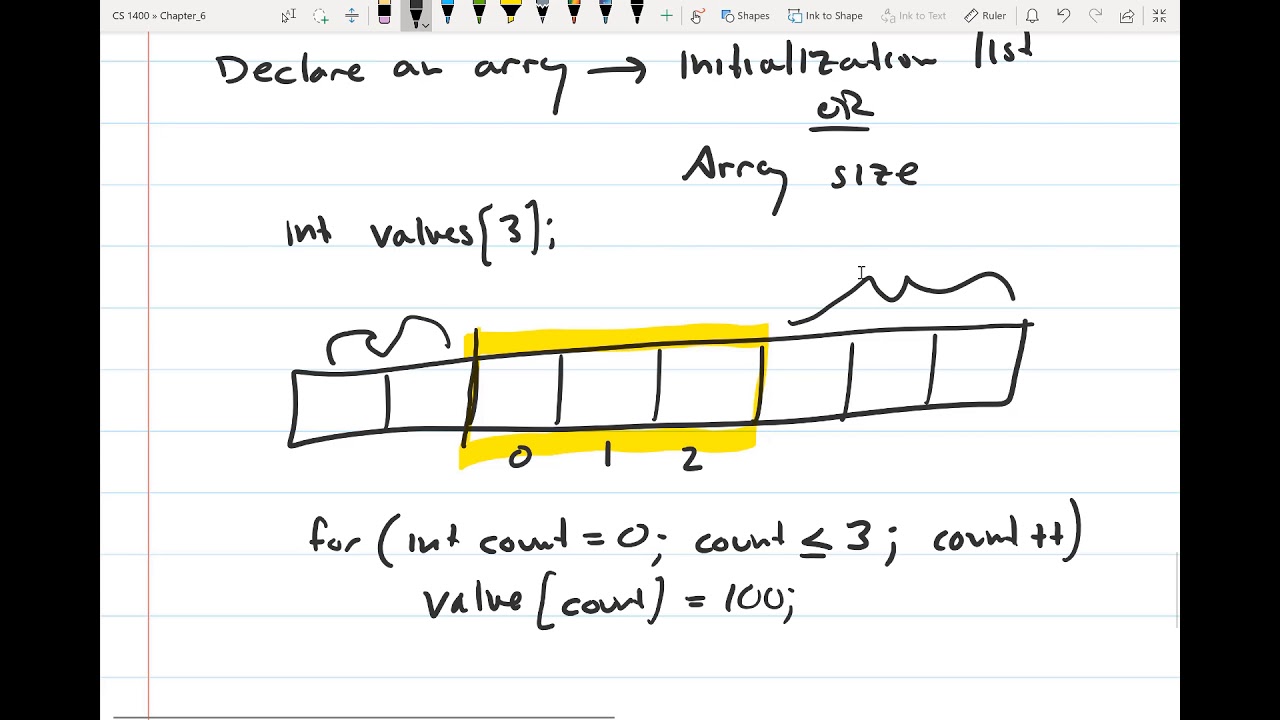 CS 1400 » Chapter_6
Shapes Ink to Shape Ink to Text Ruler
Declare an array → Initialization list
OR
Array size
int values[3];
0 1 2
for (int count = 0; count ≤ 3; count++)
value[count] = 100;